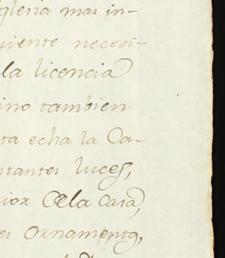 glesia mas in-
uiente necesi-
la licencia
ino tambien
ta echa la Ca-
stantes luces,
rior Dela Casa,
es ornamento,